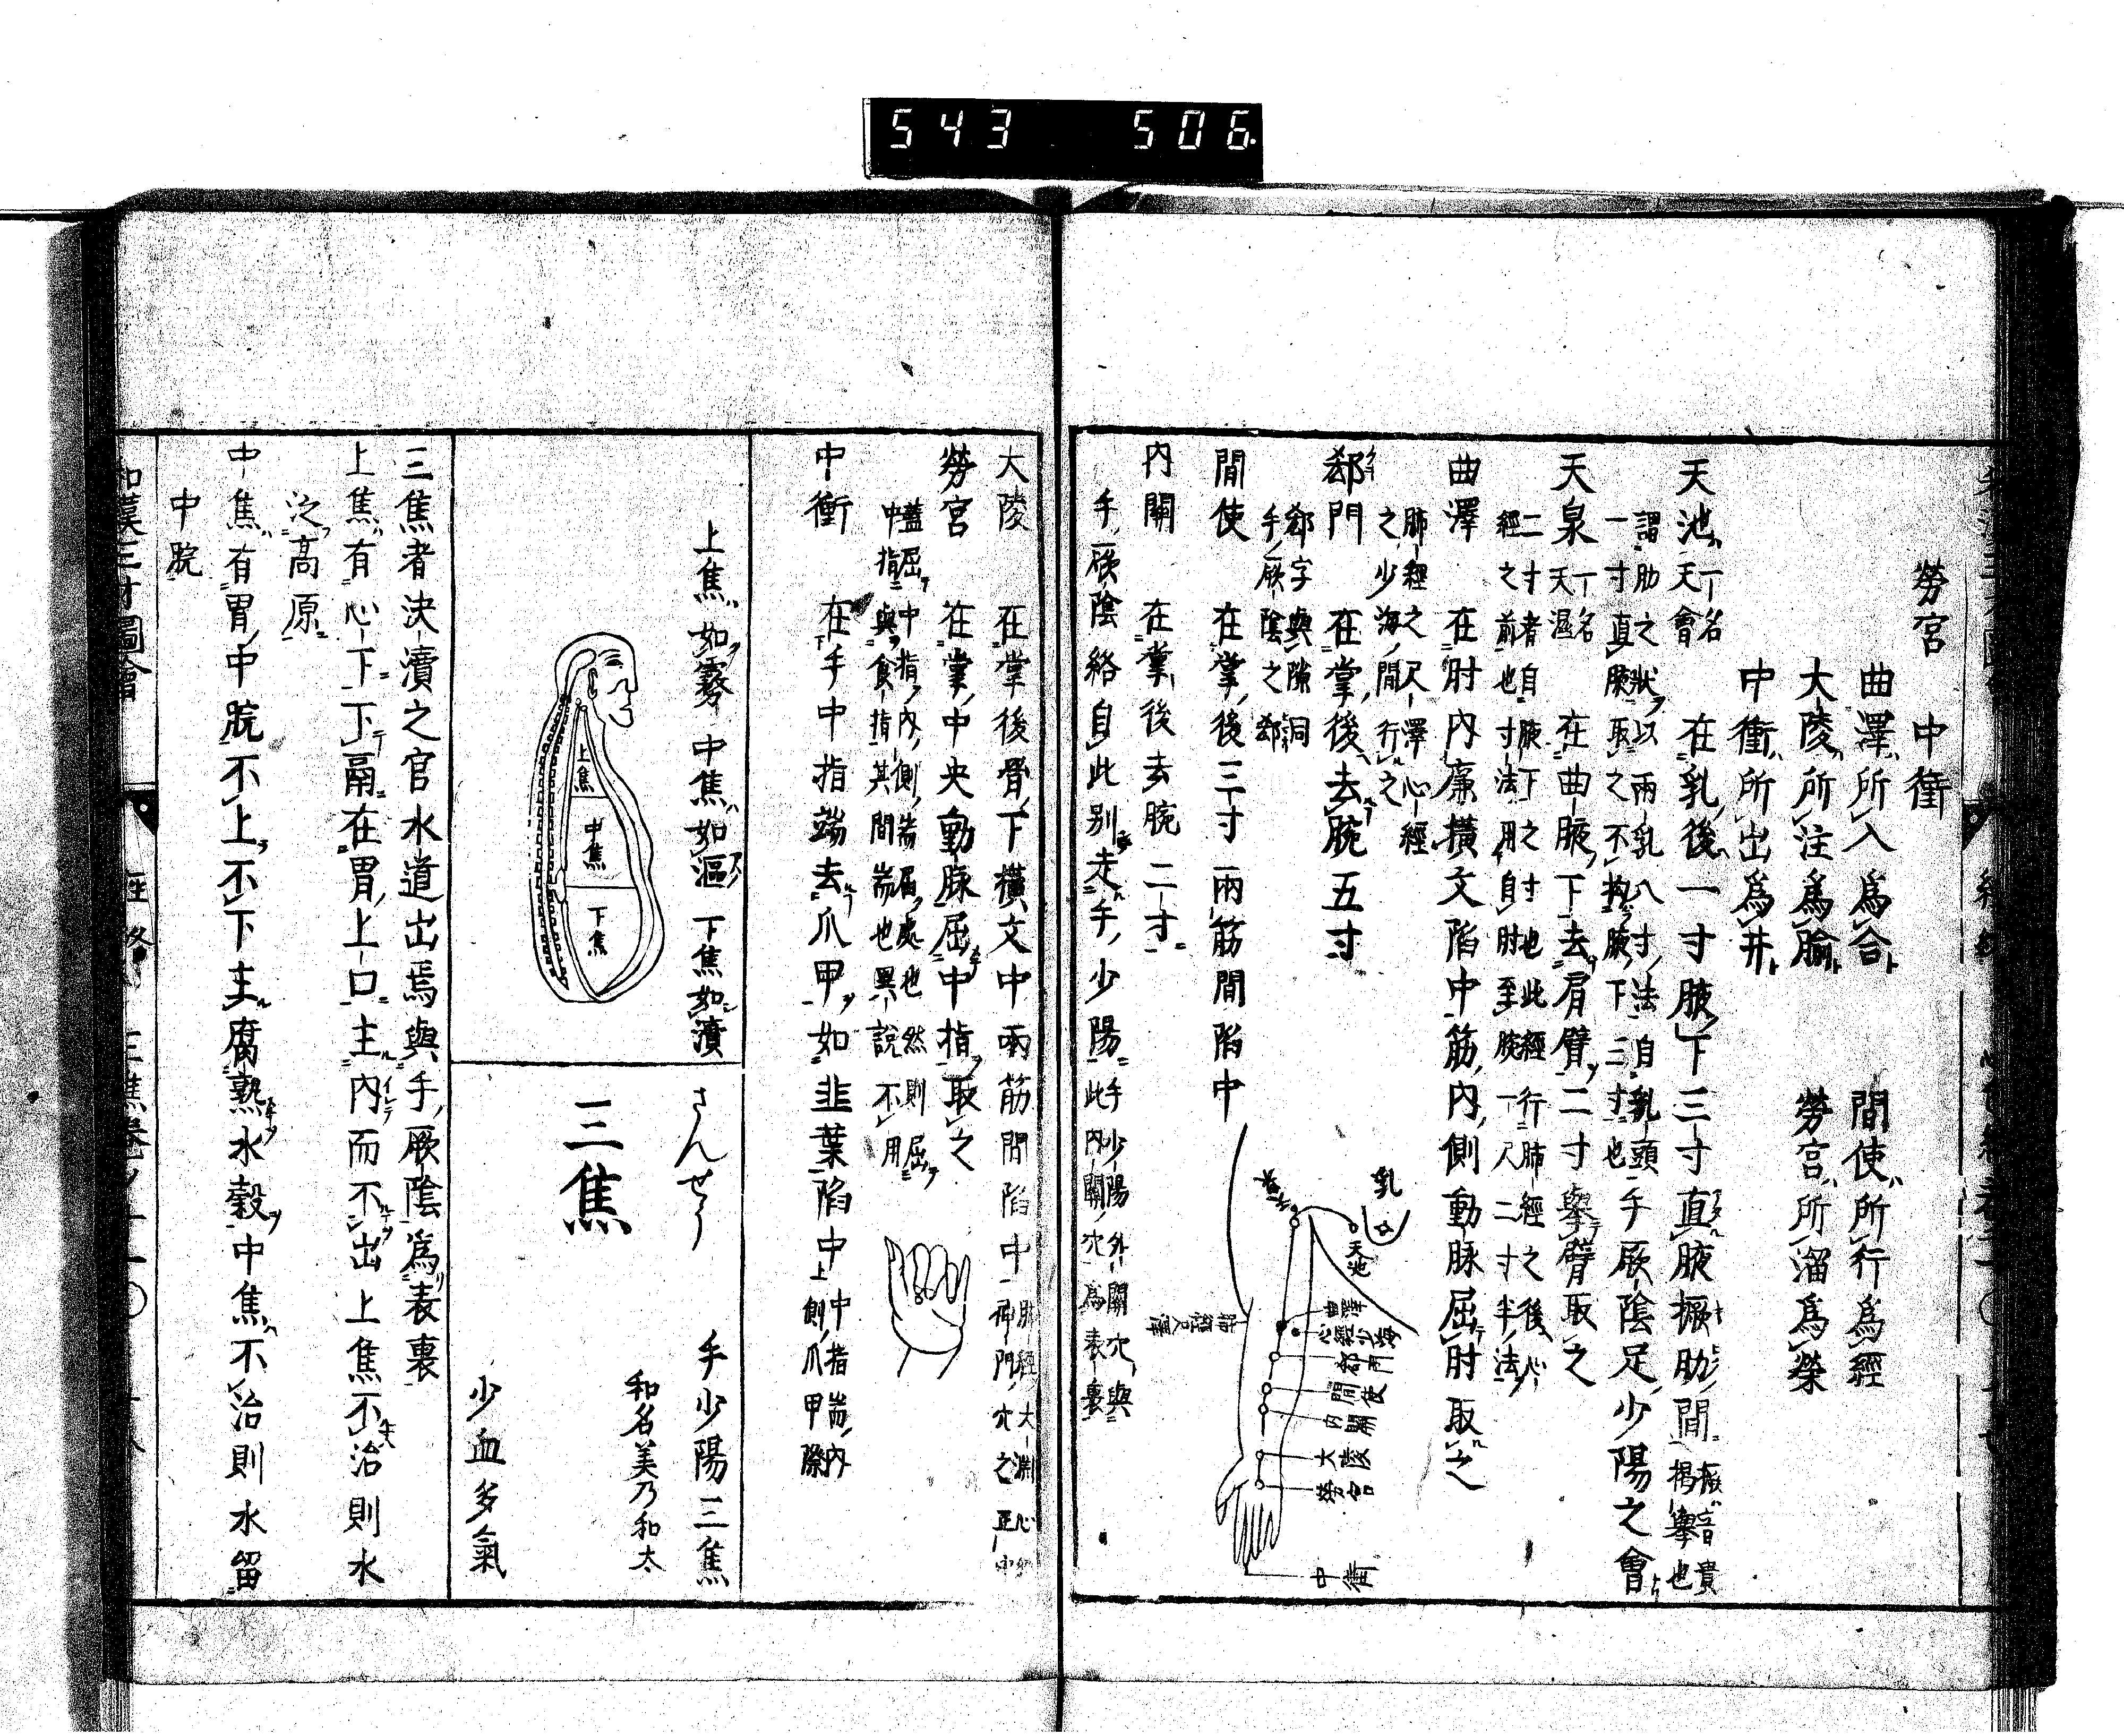 543 506
勞宮 中衝
曲澤所入為合 間使所行為經
大陵所注為腧 勞宮所溜為榮
中衝所出為井
天池 一名天會 在乳後一寸腋下三寸直腋撅肋間 撅音貴揭擧也
謂肋之狀以兩乳八寸法自乳頭一寸直腋取之不拘腋下三寸也 手厥陰足少陽之會
天泉 一名天温 在曲腋下去肩臂二寸擧臂取之
二寸者自腋下之寸也此經行肺經之後心
經之前也寸法用自肘至腕一尺二寸半法
曲澤 在肘内廉橫文陷中筋内側動脉屈肘取之
肺經之尺澤心經之少海間行之
郄門 在掌後去腕五寸
郄字與隙洞手厥陰之郄
間使 在掌後三寸兩筋間陷中
内關 在掌後去腕二寸
手厥陰絡自此別走手少陽 手少陽外關穴與此内關穴為表裏
乳
天池
天泉
曲澤
心經少海
肺經尺澤
郄門
間使
内關
大陵
勞宮
中衝
大陵 在掌後骨下橫文中兩筋間陷中
勞宮 在掌中央動脉屈中指取之
蓋屈中指内側耑屈處也然則屈
中指與食指其間耑也異說不用
中衝 在手中指端去爪甲如韭葉陷中 中指耑内上側爪甲際
上焦如霧 中焦如漚 下焦如瀆
上焦
中焦
下焦
さんせう
三焦
手少陽三焦
和名美乃和太
少血多氣
三焦者決瀆之官水道出焉與手厥陰為表裏
上焦有心下下鬲在胃上口主内而不出上焦不治則水
泛高原
中焦有胃中脘不上不下主腐熟水穀中焦不治則水留
中脘
和漢三才圖會 經絡 三焦 卷之十一